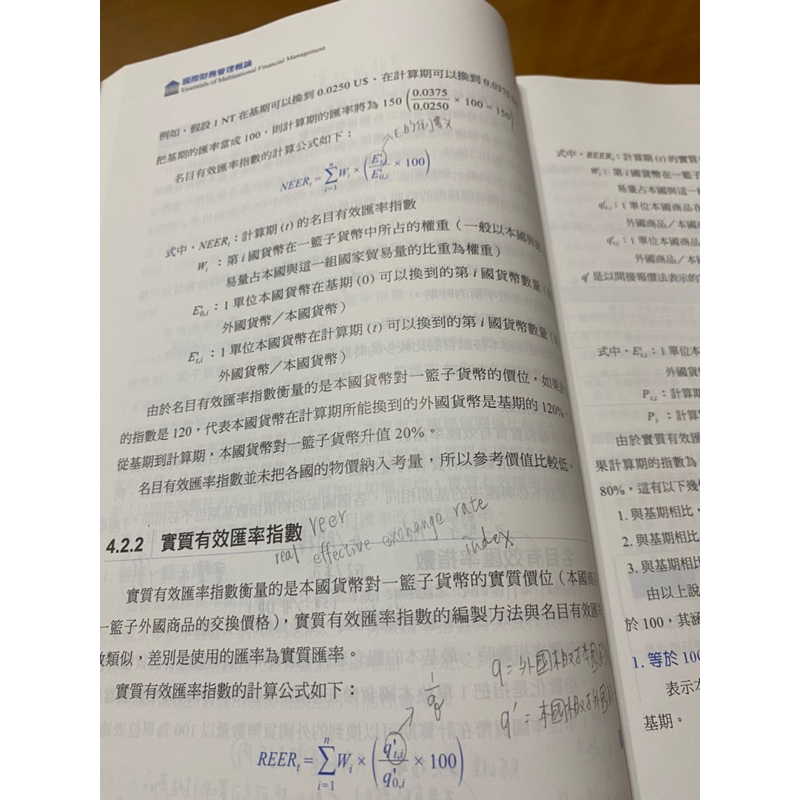 國際財務管理概論
Essentials of Multinational Financial Management
例如,假設 1 NT 在基期可以換到 0.0250 U$、在計算期可以換到 0.0375
把基期的匯率當成 100,則計算期的匯率將為 150 (0.0375/0.0250 × 100 = 150)
名目有效匯率指數的計算公式如下:
NEERₜ = Σⁿᵢ₌₁ Wᵢ × (E'ₜ,ᵢ/E'₀,ᵢ × 100)
式中,NEERₜ:計算期 (t) 的名目有效匯率指數
Wᵢ:第 i 國貨幣在一籃子貨幣中所占的權重(一般以本國與
易量占本國與這一組國家貿易量的比重為權重)
E'₀,ᵢ:1 單位本國貨幣在基期 (0) 可以換到的第 i 國貨幣數量
外國貨幣/本國貨幣)
E'ₜ,ᵢ:1 單位本國貨幣在計算期 (t) 可以換到的第 i 國貨幣數量
外國貨幣/本國貨幣)
由於名目有效匯率指數衡量的是本國貨幣對一籃子貨幣的價位,如果
的指數是 120,代表本國貨幣在計算期所能換到的外國貨幣是基期的 120%,
從基期到計算期,本國貨幣對一籃子貨幣升值 20%。
名目有效匯率指數並未把各國的物價納入考量,所以參考價值比較低。
4.2.2 實質有效匯率指數 reer
real effective exchange rate
index
實質有效匯率指數衡量的是本國貨幣對一籃子貨幣的實質價位(本國商
一籃子外國商品的交換價格),實質有效匯率指數的編製方法與名目有效匯
數類似,差別是使用的匯率為實質匯率。
實質有效匯率指數的計算公式如下:
1/q
REERₜ = Σⁿᵢ₌₁ Wᵢ × (q'ₜ,ᵢ/q'₀,ᵢ × 100)
式中,REERₜ:計算期 (t) 的實質
Wᵢ:第 i 國貨幣在一籃
易量占本國與這一
q'₀,ᵢ:1 單位本國商品在
外國商品/本國
q'ₜ,ᵢ:1 單位本國商品
外國商品/本
q' 是以間接報價法表示的
式中,E'ₜ,ᵢ:1 單位本
外國貨
Pₜ,ᵢ:計算期
Pₜ:計算
由於實質有效匯
果計算期的指數為
80%,這有以下幾
1. 與基期相比,
2. 與基期相比
3. 與基期相比
由以上說
於 100,其涵
1. 等於 100
表示本
基期。